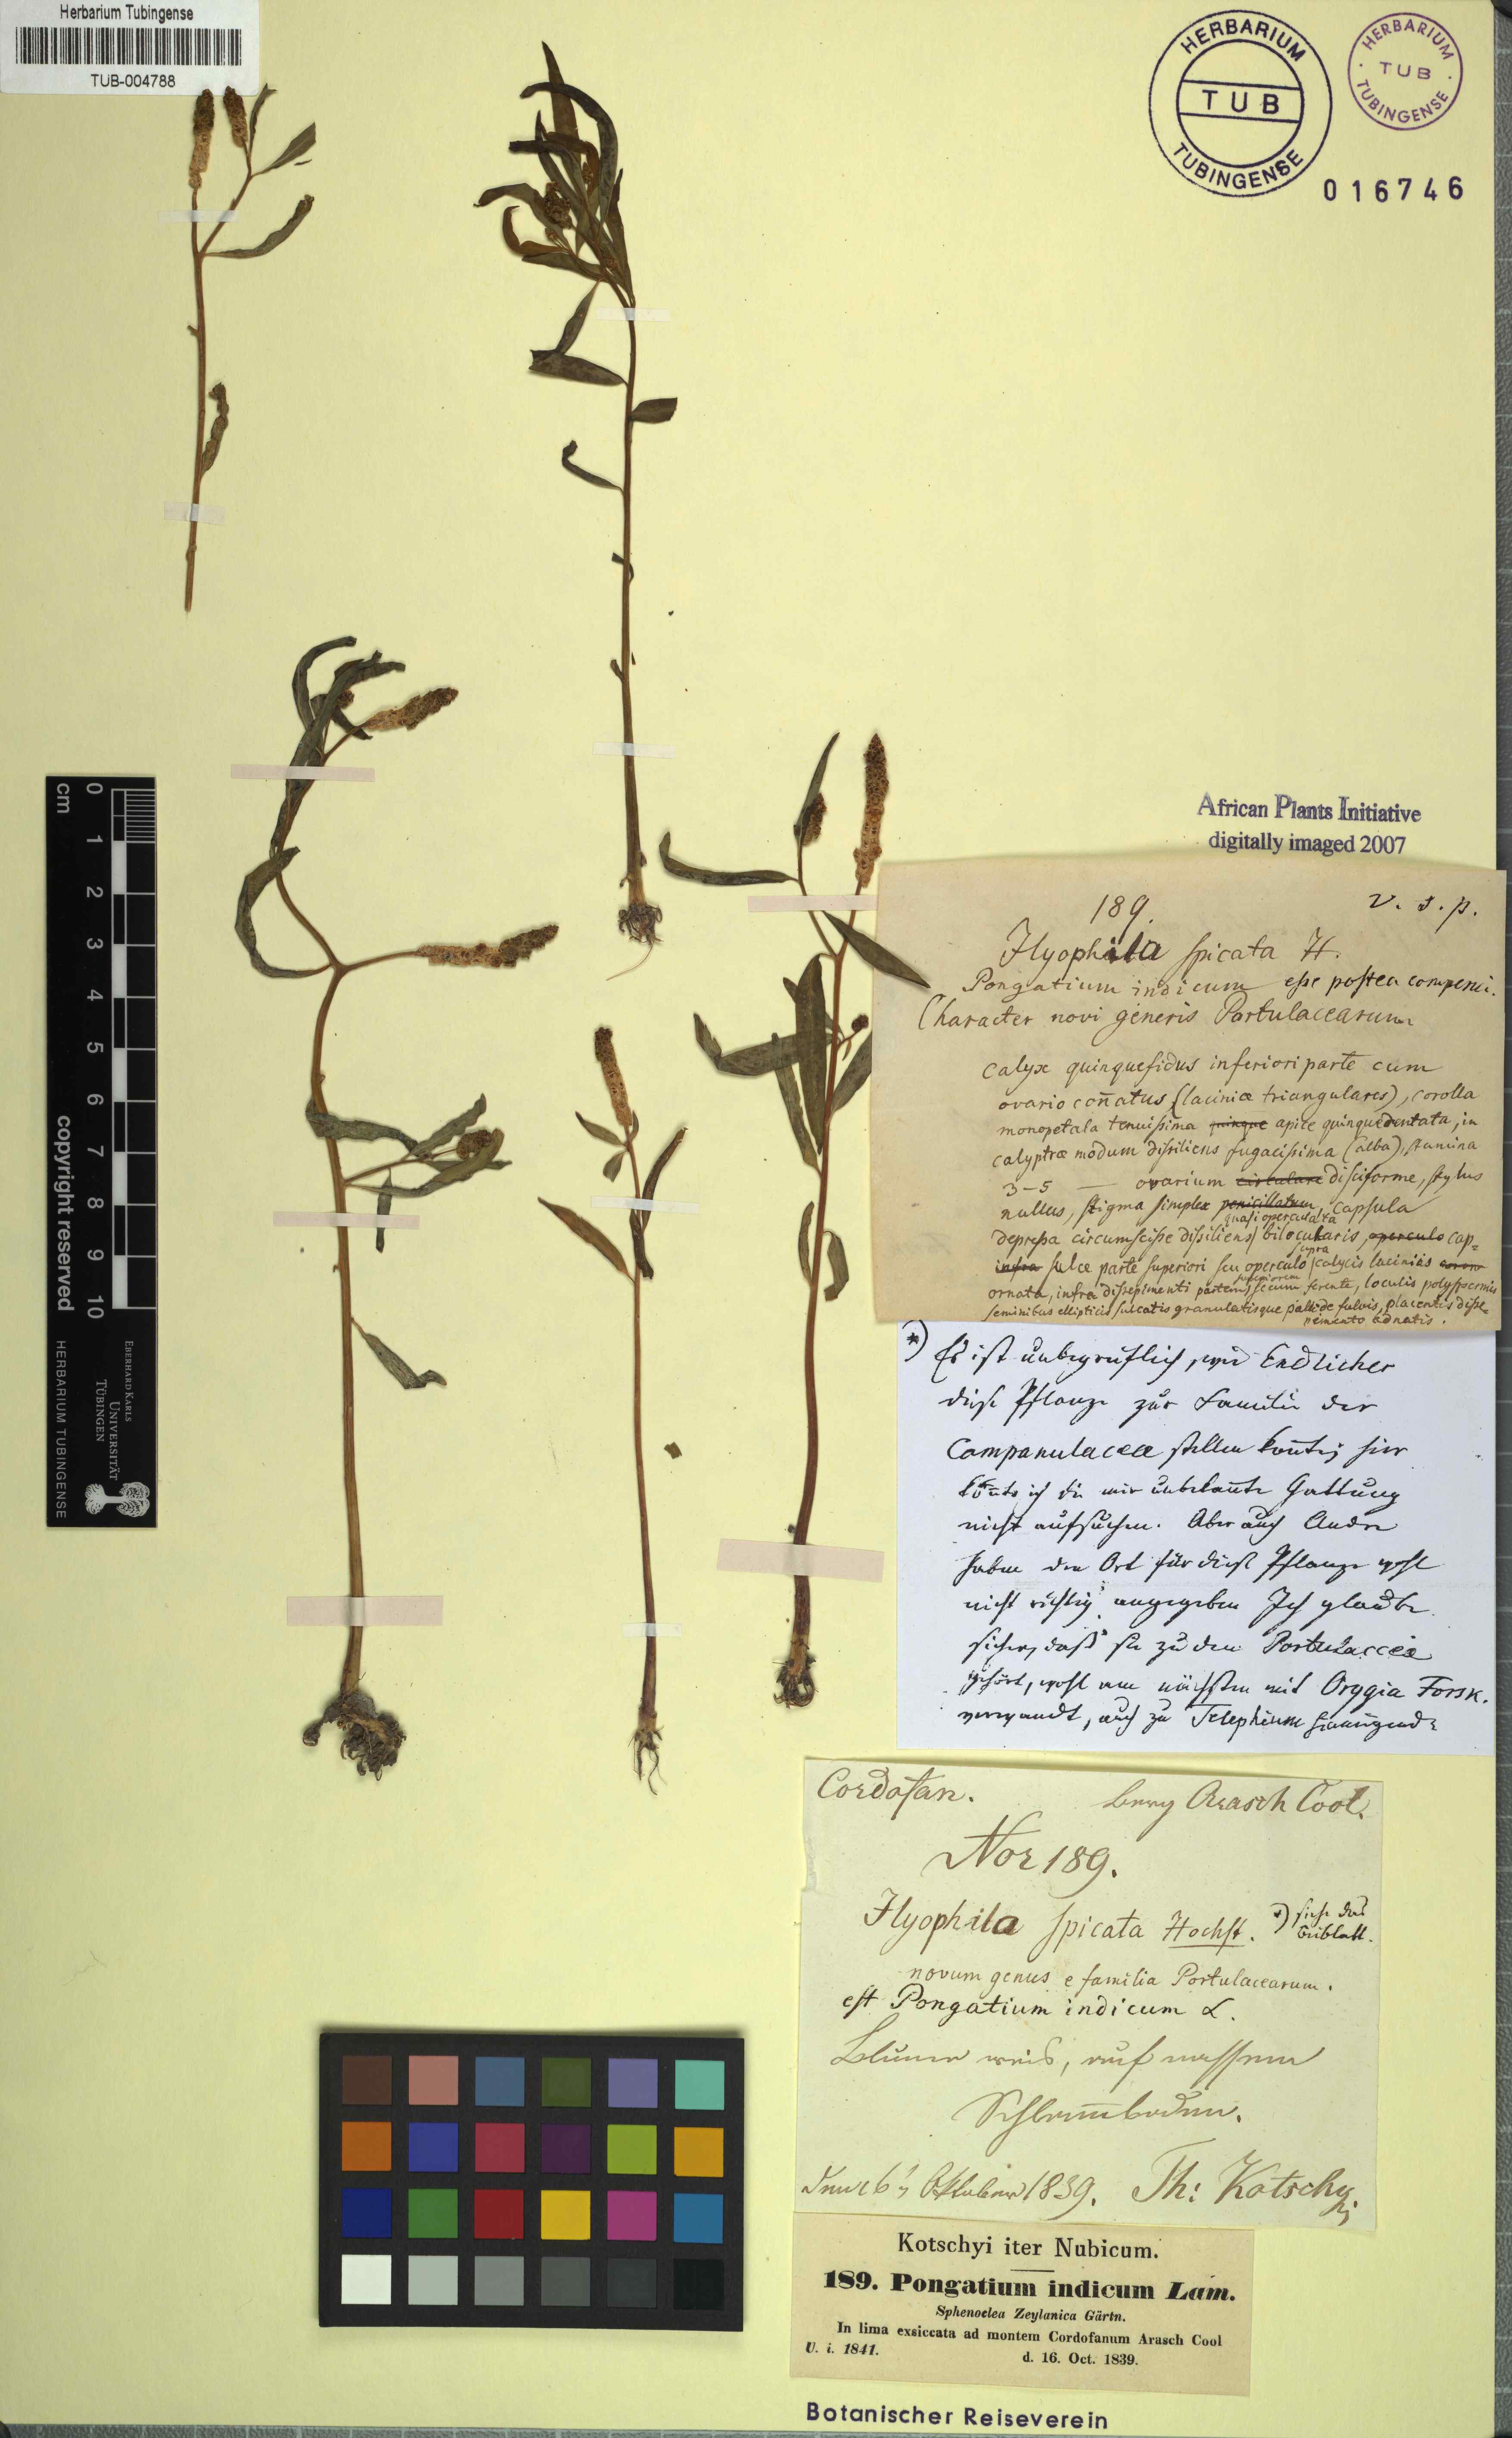 Herbarium Tubingense
TUB-004788
HERBARIUM
TUB
TUBINGENSE
HERBARIUM
TUB
TUBINGENSE
016746
African Plants Initiative
digitally imaged 2007
189.
v. s. p.
Ilyophila spicata H.
Pongatium indicum esse postea comperui.
Character novi generis Portulacearum
Calyx quinquefidus inferiori parte cum
ovario coñatus (laciniæ triangulares), corolla
monopetala tenuissima quinque apice quinquedentata, in
calyptræ modum dissiliens fugacissima (alba), stamina
3-5 — ovarium disciforme, stylus
nullus, stigma simplex penicillatum, capsula
quasi operculata
depressa circumscisse dissiliens, bilocularis, operculo cap=
supra
infra sulæ parte superiori seu operculo calycis laciniis
superiorem
ornata, infra dissepimenti partem secum ferente, loculis polyspermis
seminibus ellipticis sulcatis granulatisque pallide fulvis, placentis disse=
pimento adnatis.
*) Es ist unbegreiflich, wie Endlicher
diese Pflanze zur Familie der
Campanulaceæ stellen konnte; hier
konnte ich die mir unbekañte Gattung
nicht aufsuchen. Aber auch Andre
haben den Ort für diese Pflanze wohl
nicht richtig angegeben Ich glaube
sicher, daß sie zu den Portulacceæ
gehört, wohl am nächsten mit Orygia Forsk.
verwandt, auch zu Telephium
Cordofan. berg Arasch Cool.
Nor 189.
Ilyophila spicata Hochst. *) siehe das
Beiblatt.
novum genus e familia Portulacearum.
est Pongatium indicum L.
Blume weis, auf nassem
Schlam̄boden.
den 16 Oktober 1839. Th: Kotschy
Kotschyi iter Nubicum.
189. Pongatium indicum Lam.
Sphenoclea Zeylanica Gärtn.
In lima exsiccata ad montem Cordofanum Arasch Cool
U. i. 1841. d. 16. Oct. 1839.
Botanischer Reiseverein
cm
0
1
2
3
4
5
6
7
8
9
10
copyright reserved
HERBARIUM TUBINGENSE
EBERHARD KARLS
UNIVERSITÄT
TÜBINGEN